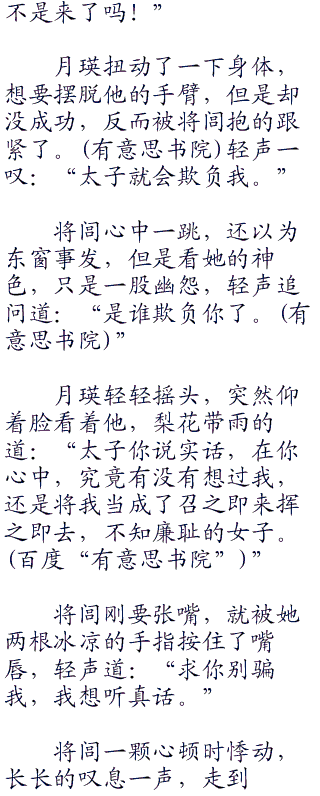 不是来了吗！”
月瑛扭动了一下身体，
想要摆脱他的手臂，但是却
没成功，反而被将闾抱的跟
紧了。(有意思书院)轻声一
叹：“太子就会欺负我。”
将闾心中一跳，还以为
东窗事发，但是看她的神
色，只是一股幽怨，轻声追
问道：“是谁欺负你了。(有
意思书院)”
月瑛轻轻摇头，突然仰
着脸看着他，梨花带雨的
道：“太子你说实话，在你
心中，究竟有没有想过我，
还是将我当成了召之即来挥
之即去，不知廉耻的女子。
(百度“有意思书院”)”
将闾刚要张嘴，就被她
两根冰凉的手指按住了嘴
唇，轻声道：“求你别骗
我，我想听真话。”
将闾一颗心顿时悸动，
长长的叹息一声，走到